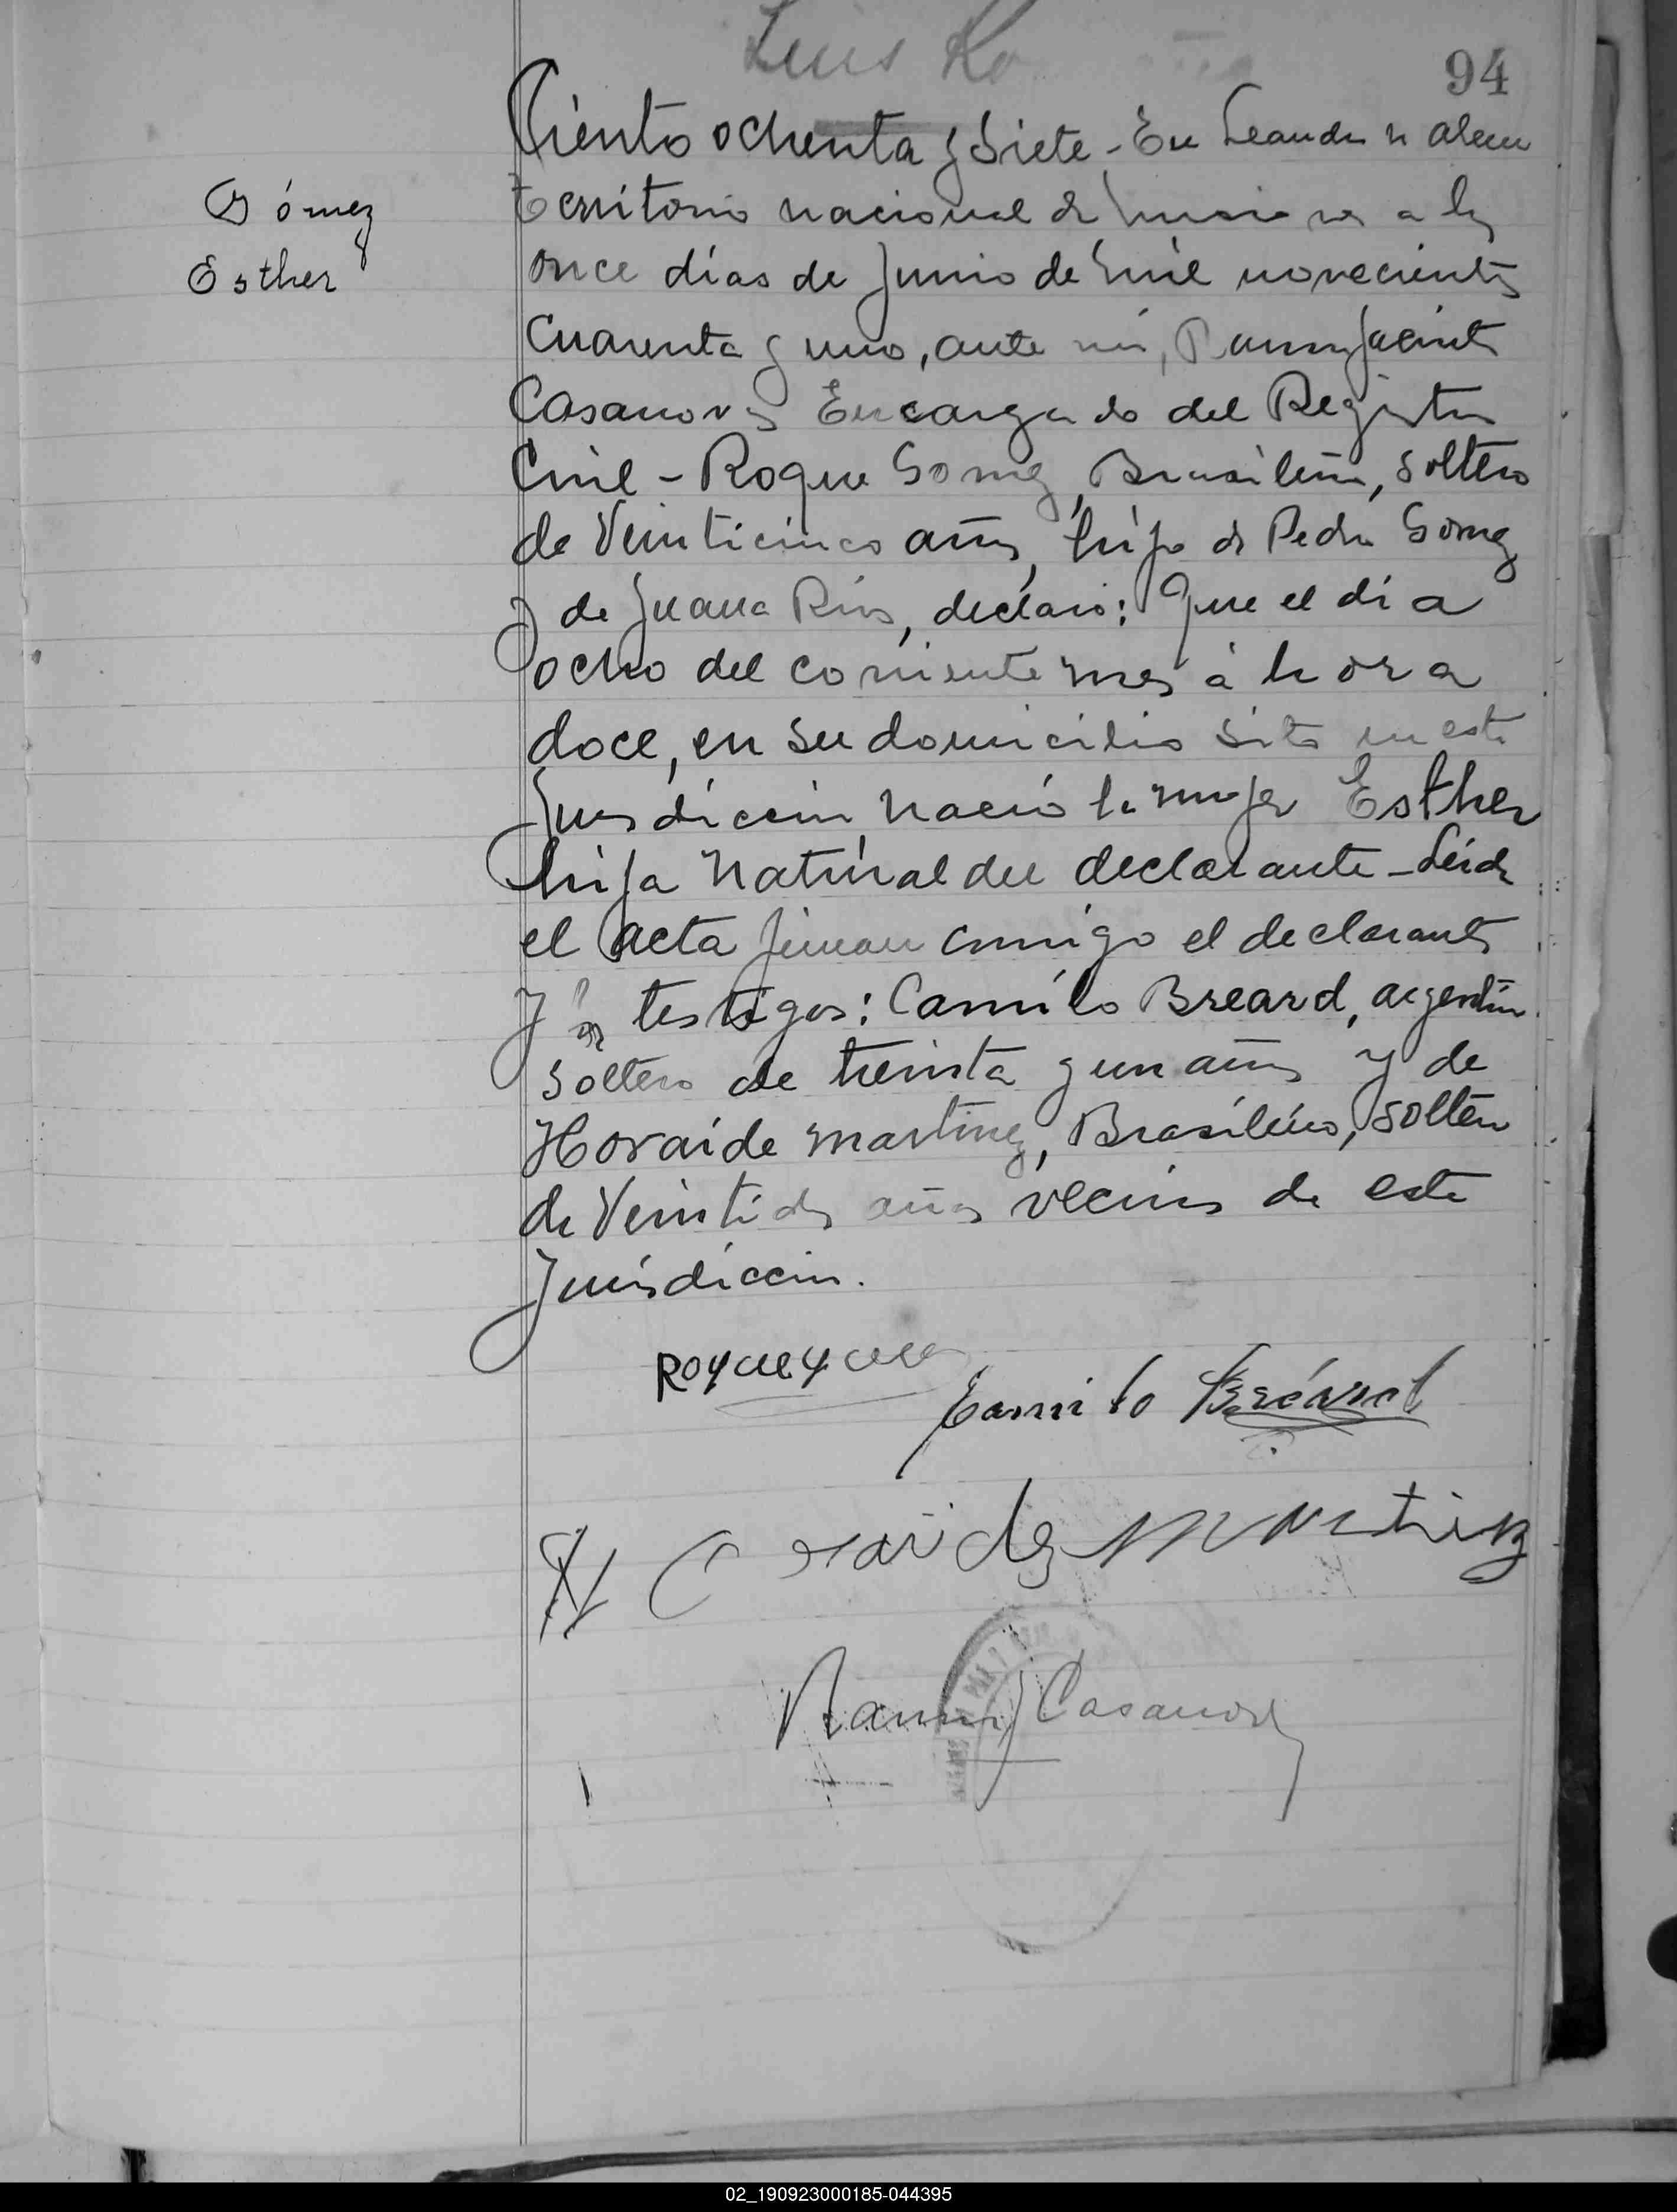 Luis Ro
94
Ciento ochenta y Siete - En Leandro N Alem
Gómez
territorio nacional de Misiones a los
Esther
once días de Junio de Mil novecientos
cuarenta y uno, ante mí, Ramon Jacinto
Casanova Encargado del Registro
Civil - Roque Gomez, Brasileño, soltero
de Veinticinco años, hijo de Pedro Gomez
y de Juana Rios, declaró: Que el día
ocho del corriente mes á hora
doce, en su domicilio sito en esta
Jurisdiccion nació la mujer Esther
hija Natural del declarante - Leida
el acta firman conmigo el declarante
y los testigos: Camilo Breard, argentino
soltero de treinta y un años y de
Horaide Martinez, Brasileño, soltero
de Veintidos años vecinos de esta
Jurisdiccion.
Camilo Breárd
Martinez
Ramon J Casanova
02_190923000185-044395